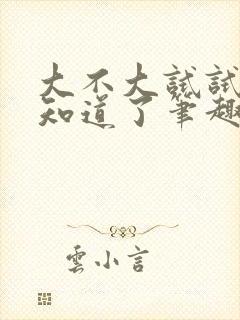 大不大試試
知道了筆趣
雲小言